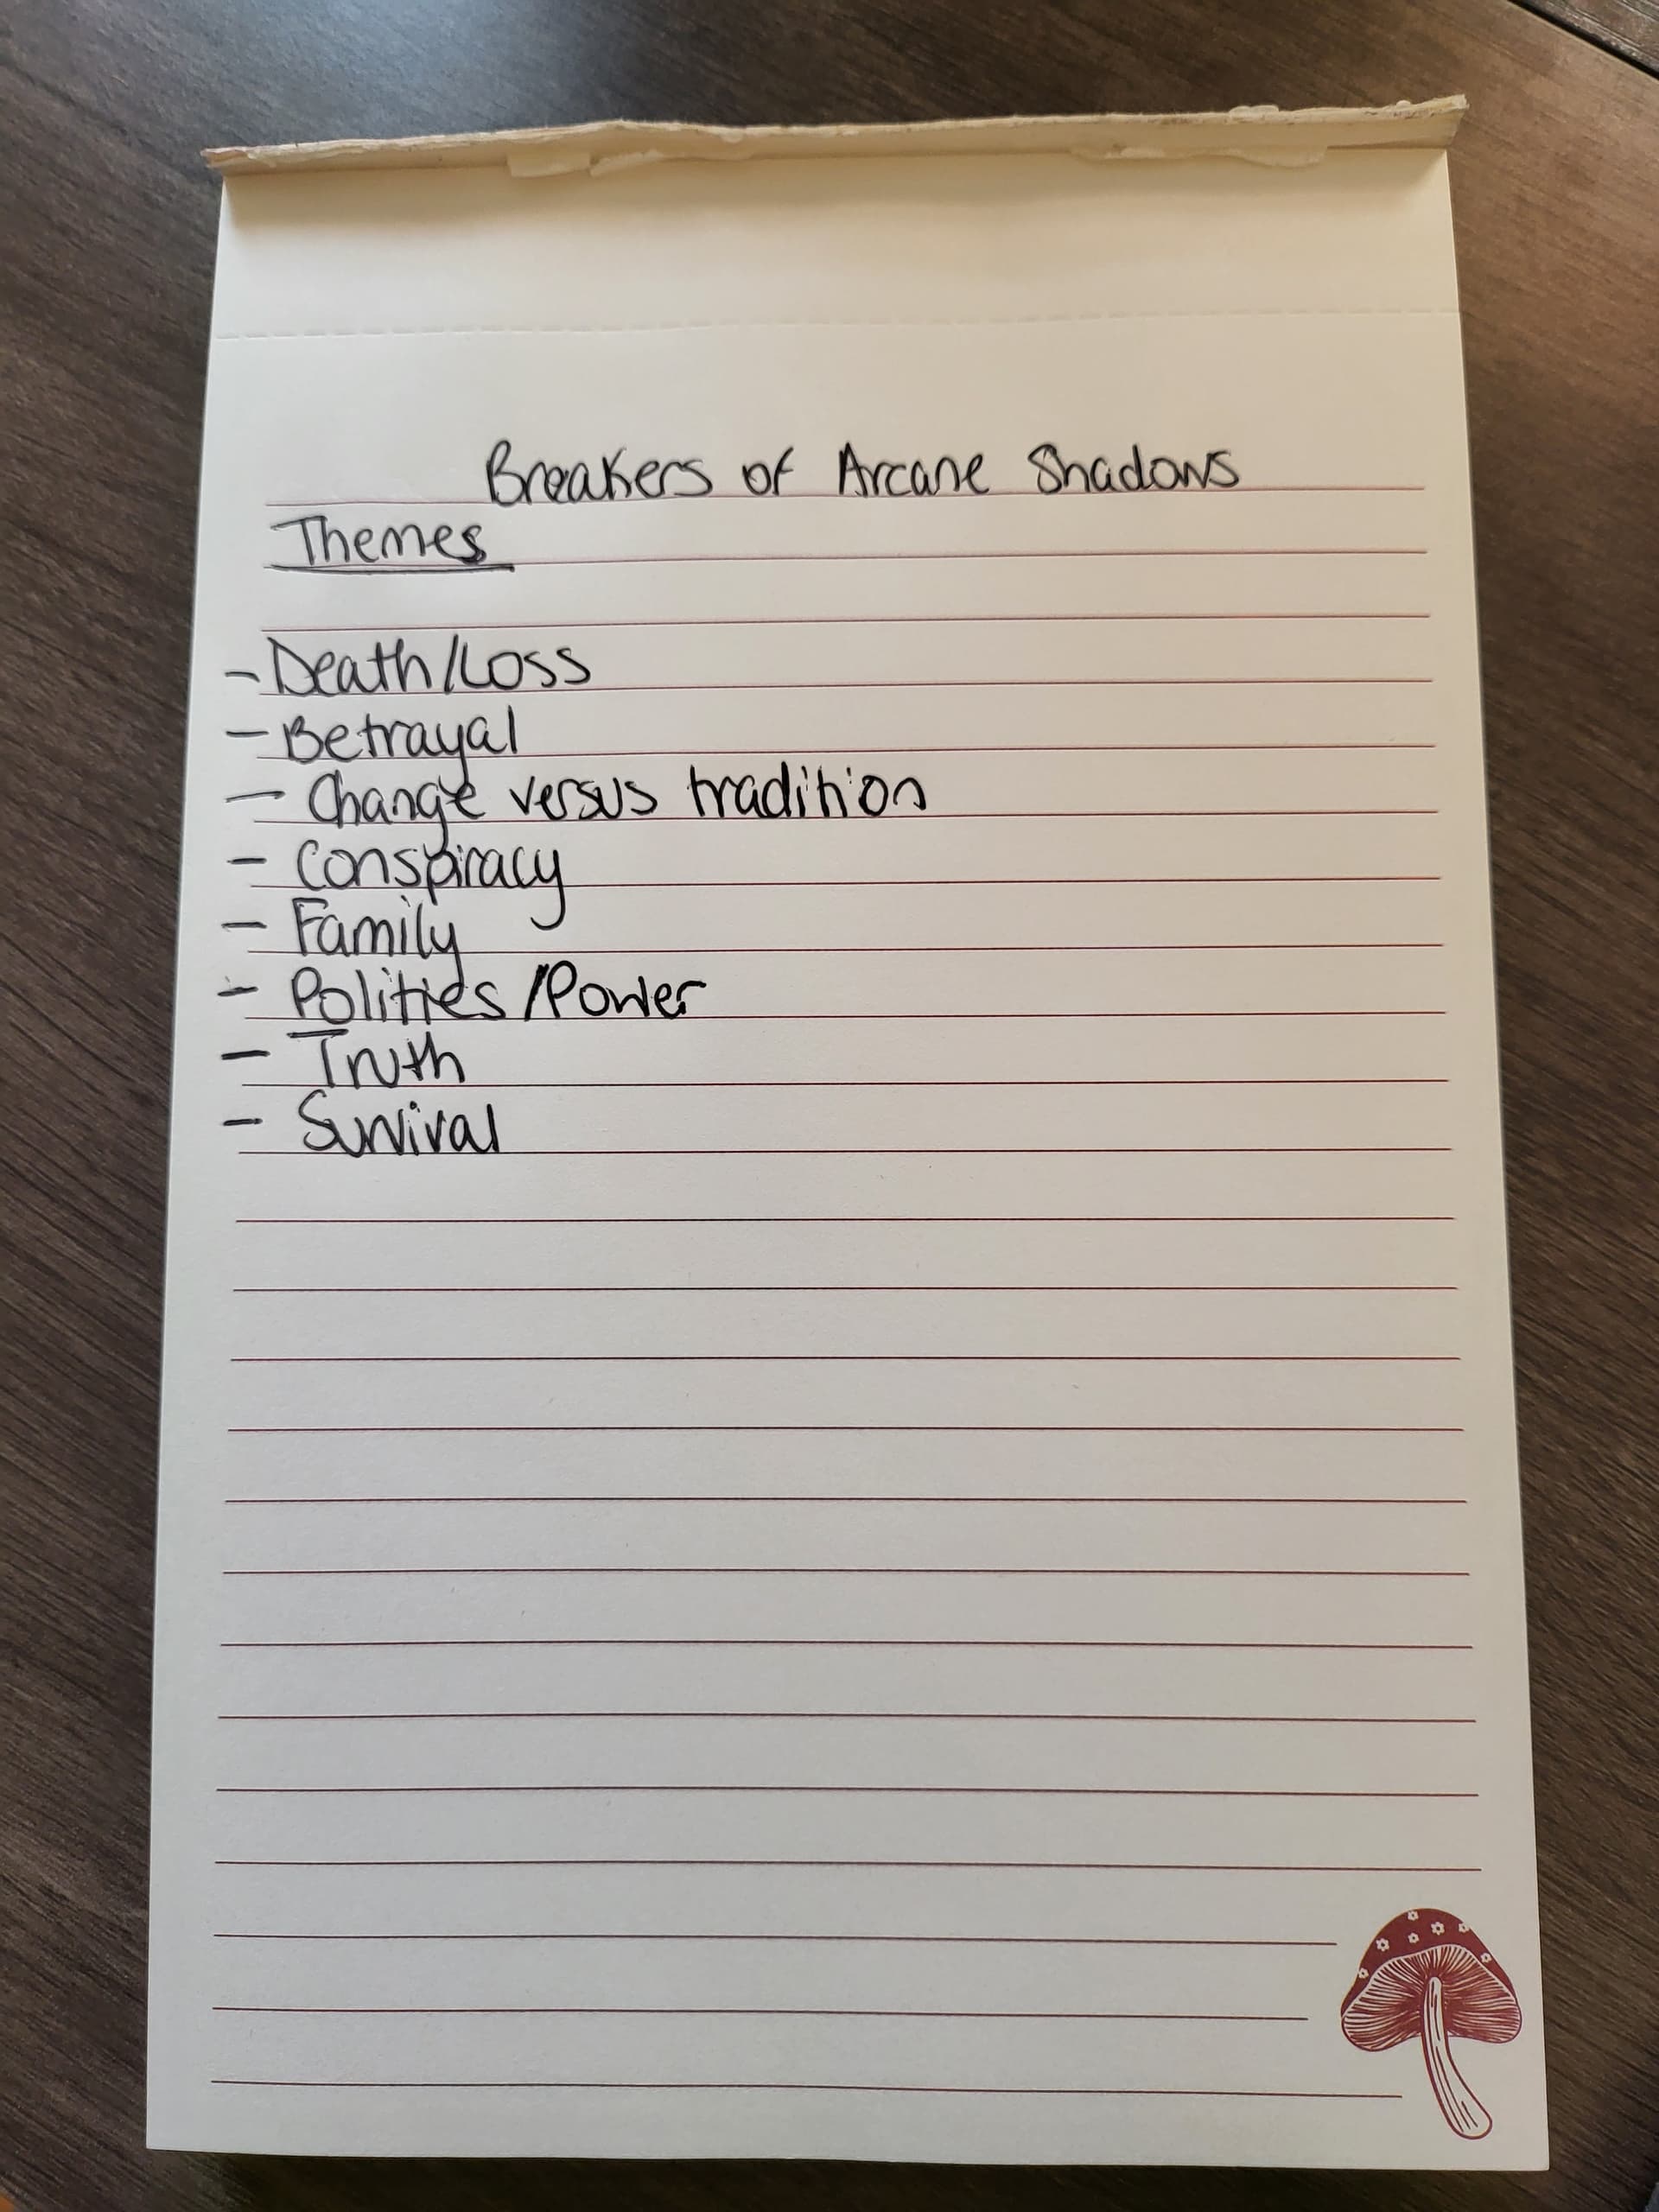 Breakers of Arcane Shadows
Themes
-Death/Loss
- Betrayal
- Change versus tradition
- Conspiracy
- Family
- Polities/Power
- Truth
- Survival